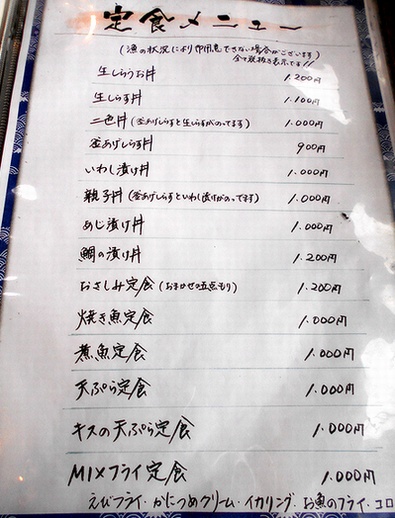 定食メニュー
(漁の状況により御用意できない場合がございます)
全て税抜き表示です!!
生しらうお丼 1.200円
生しらす丼 1.100円
二色丼(釜あげしらすと生しらすがのってます) 1.000円
釜あげしらす丼 900円
いわし漬け丼 1.000円
親子丼(釜あげしらすといわし漬けがのってます) 1.000円
めじ漬け丼 1.000円
鯛の漬け丼 1.200円
おさしみ定食(おまかせの五点もり) 1.200円
焼き魚定食 1.000円
煮魚定食 1.000円
天ぷら定食 1.000円
キスの天ぷら定食 1.000円
MIXフライ定食 1.000円
えびフライ・かにつめクリーム・イカリング・お魚のフライ・コロ